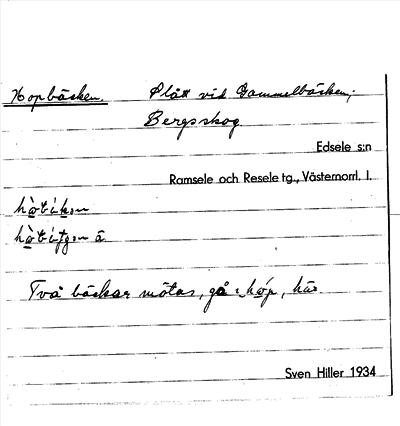 Hopbäcken. Plåt vid Gammelbäcken,
Bergsskog
Edsele s:n
Ramsele och Resele tg., Västernorrl. l.
Två bäckar mötas, gå i hóp, här.
Sven Hiller 1934